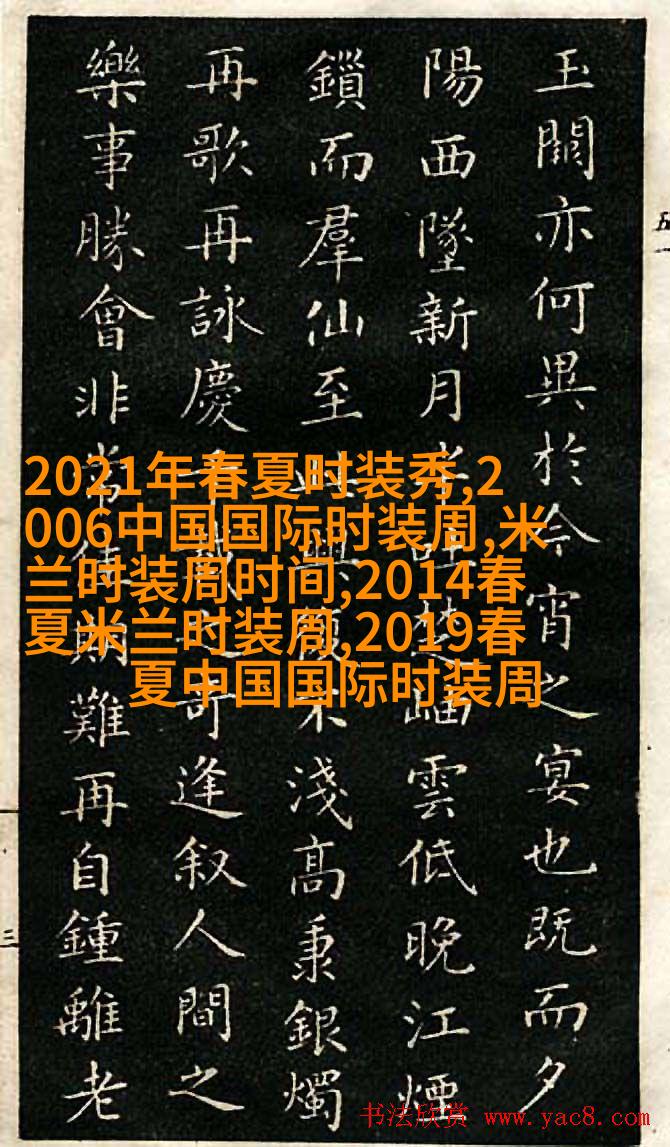 玉闕亦何異於今宵之宴也既而夕
陽西墜新月吐岫雲低晚江煙
鎖而羣仙至興不淺高秉銀燭
再歌再詠慶千載之可逢叙人間之
樂事勝會非常難再自鍾離老
2021年春夏时装秀,2
006中国国际时装周,米
兰时装周时间,2014春
夏米兰时装周,2019春
夏中国国际时装周
书法欣赏 www.yac8.com